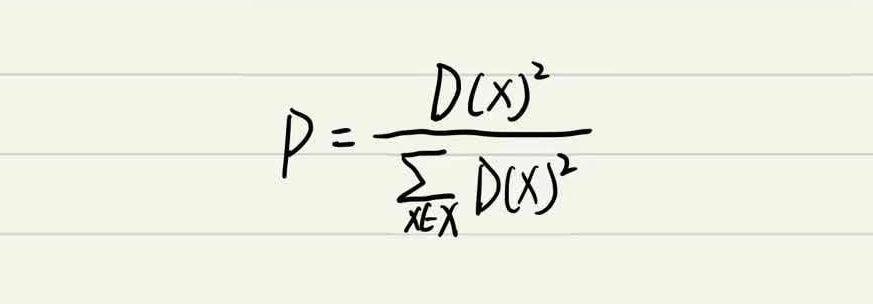 P = \frac{D(x)^2}{\sum_{x \in X} D(x)^2}